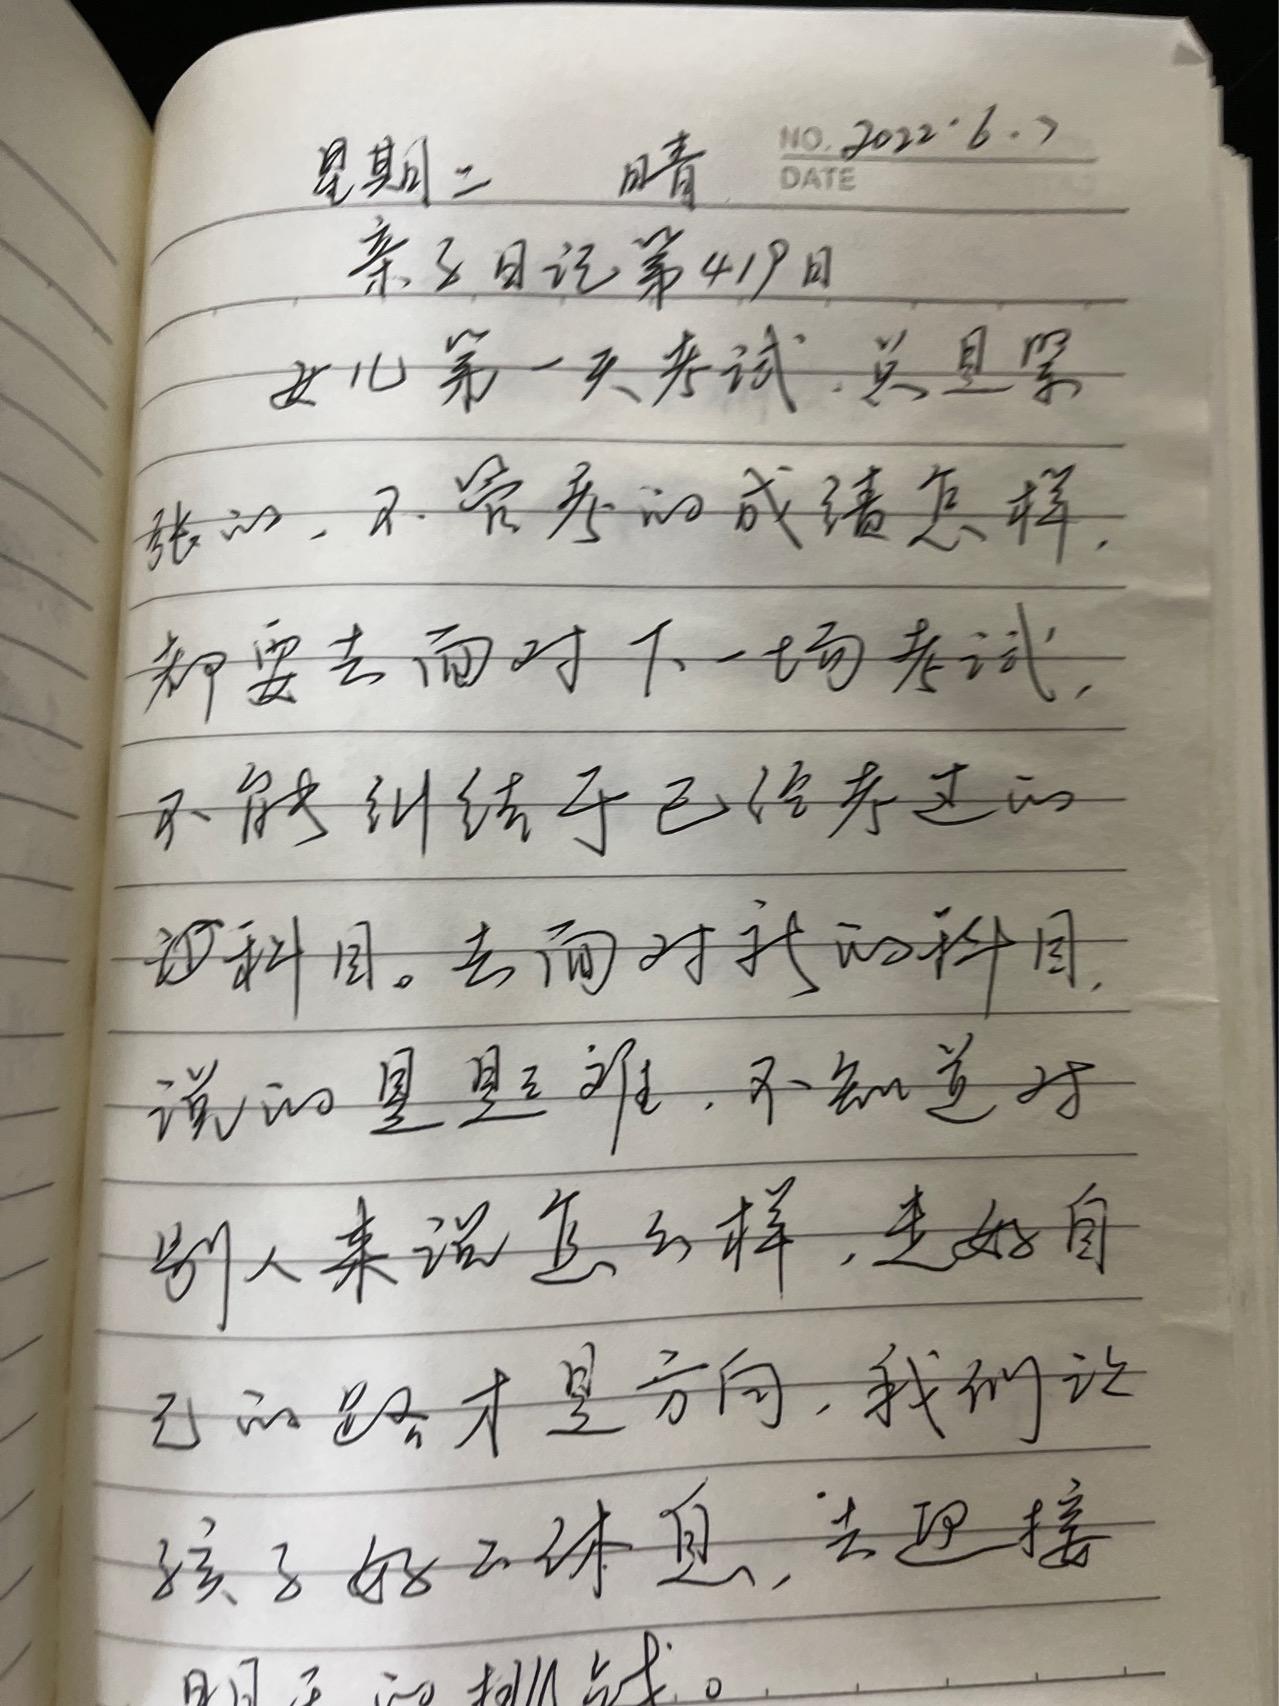 NO. 2022.6.7
星期二 晴
DATE
亲子日记第419日
女儿第一天考试,总是紧
张的,不管考的成绩怎样,
都要去面对下一场考试,
不能纠结于已经考过的
科目。去面对新的科目,
说的是题难,不知道对
别人来说怎么样,走好自
己的路才是方向,我们让
孩子好好休息,去迎接
明天的挑战。